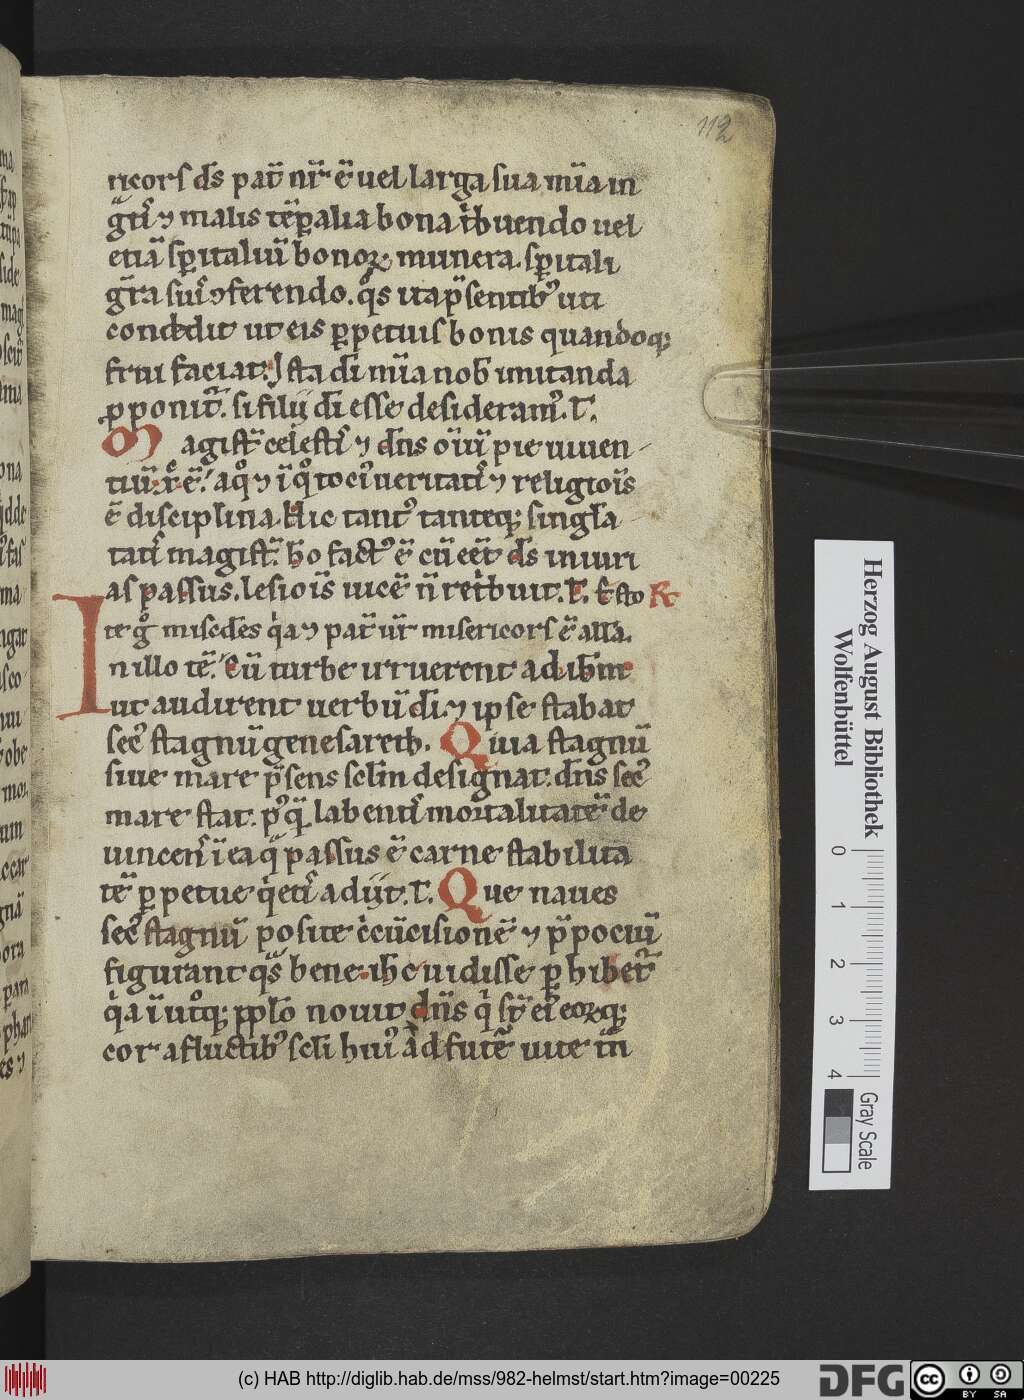 112
ricors ds pat nr ē uel larga sua mīa in
gtis ⁊ malis tēꝑalia bona tͥbuendo uel
etiā sꝑitaliū bonoꝝ munera. sꝑitali
gͣra sui ꝯferendo. qͦs ita p̄sentibꝰ uti
condedit ut eis ꝑpetuis bonis quandoqꝫ
frui faciat. Ista di mīa nob imitanda
ꝓponit. si filii di esse desideramꝰ. T.
Magist celesti ⁊ dns oīū pie uiuen-
tiū. ē. a qͦ ⁊ ī qͦ tociꝰ ueritatis ⁊ religiois
ē disciplina. Hic tantꝰ tanteqꝫ singla
tatis magist. ho factꝰ ē cū eet ds iniuri
as passus. lesiois uicē n̄ retͥbuit. T.
te gͦ misedes qͥa ⁊ pat ur misericors ē alla.
In illo tē. Cū turbe irruerent ad ihm
ut audirent uerbū di. ⁊ ipse stabat
secꝰ stagnū genesareth. Quia stagnū
siue mare p̄sens sclm designat. dns secꝰ
mare stat. pꝰqͣ labentis mortalitatē de
uincens ī ea qͣ passus ē carne stabilita
tē ꝑpetue qͥetis adiit. T. Que naues
secꝰ stagnū posite cͥcūcisionē ⁊ p̄pociū
figurant qͣs bene ihc uidisse ꝑhibet
qͥa ī utͦqꝫ pplo nouit dns qͥ st eiꝰ eorqꝫ
cor a fluctibꝰ scli huiꝰ ad futē uite tn
Herzog August Bibliothek
Wolfenbüttel
0 1 2 3 4
Gray Scale
(c) HAB http://diglib.hab.de/mss/982-helmst/start.htm?image=00225
DFG
cc BY SA